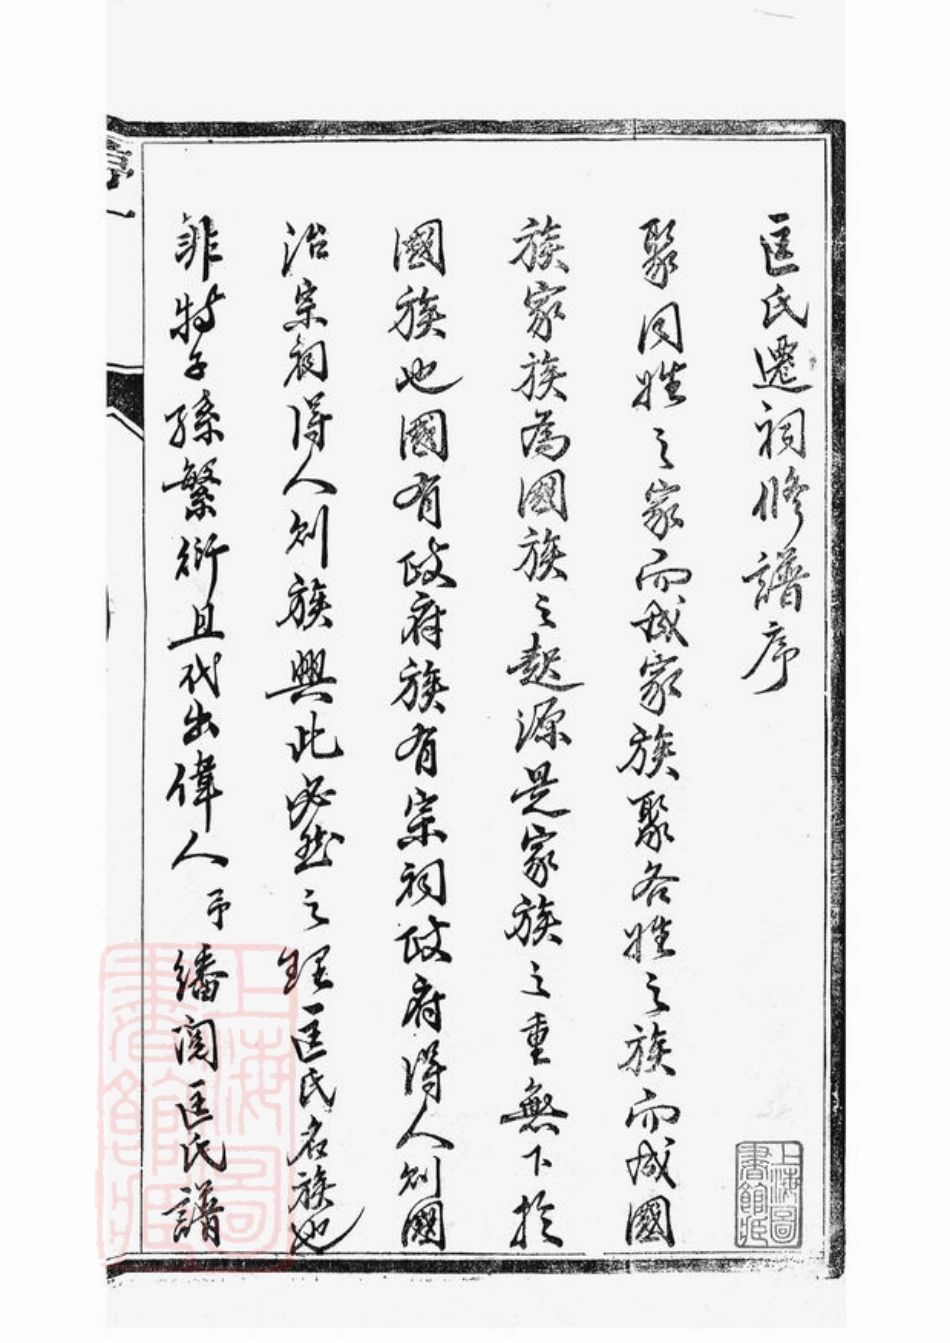 匡氏遷祠修譜序
聚同姓之家而成家族聚各姓之族而成國
族家族為國族之起源是家族之重無下於
國族也國有政府族有宗祠政府得人則國
治宗祠得人則族興此必然之理匡氏名族也
非特子孫繁衍且代出偉人予繙閱匡氏譜
序一
上海圖書館藏
上海圖書館藏